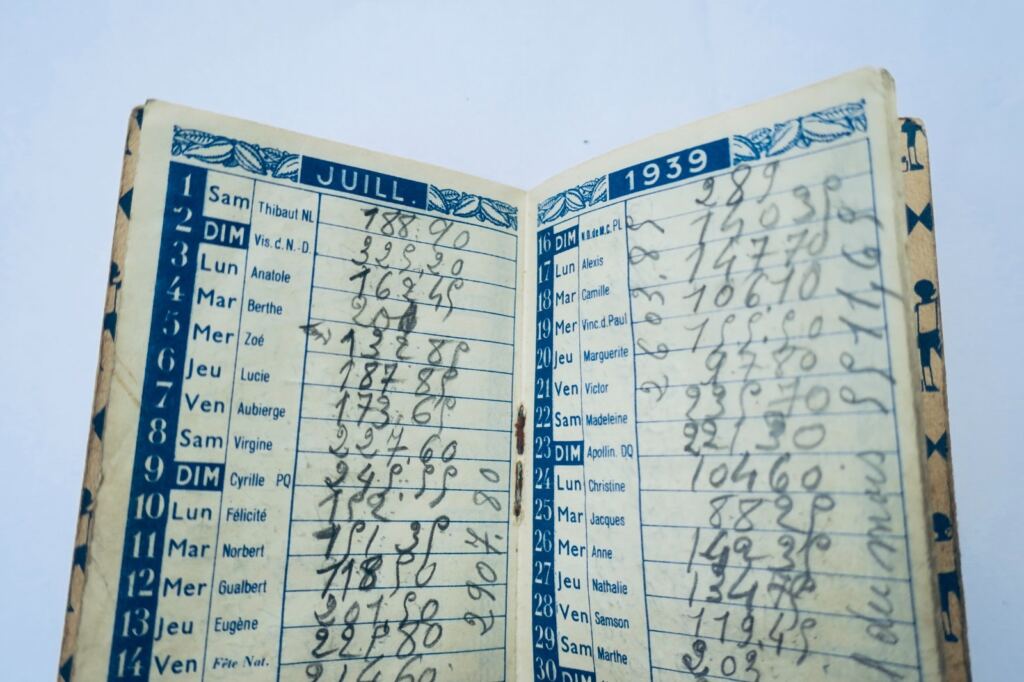 JUILL.
1 Sam Thibaut NL 188.90
2 DIM Vis.d.N.-D. 325,20
3 Lun Anatole 162.45
4 Mar Berthe 201
5 Mer Zoé 132 85
6 Jeu Lucie 187.85
7 Ven Aubierge 173,65
8 Sam Virgine 227.60
9 DIM Cyrille PQ 245.55
10 Lun Félicité 152
11 Mar Norbert 151.35
12 Mer Gualbert 118 50
13 Jeu Eugène 201,50
14 Ven Fête Nat. 225.80
214.60
2907.80
1939
16 DIM N.D.de M.C. PL 289
17 Lun Alexis 140 35
18 Mar Camille 147 70
19 Mer Vinc.d.Paul 106 10
20 Jeu Marguerite 155.50
21 Ven Victor 97.80
22 Sam Madeleine 235.70
23 DIM Apollin. DQ 221 30
24 Lun Christine 104 60
25 Mar Jacques 88 25
26 Mer Anne 149 35
27 Jeu Nathalie 134 75
28 Ven Samson 119.45
29 Sam Marthe 202
30 DIM
2603.85
du mois 5511,65